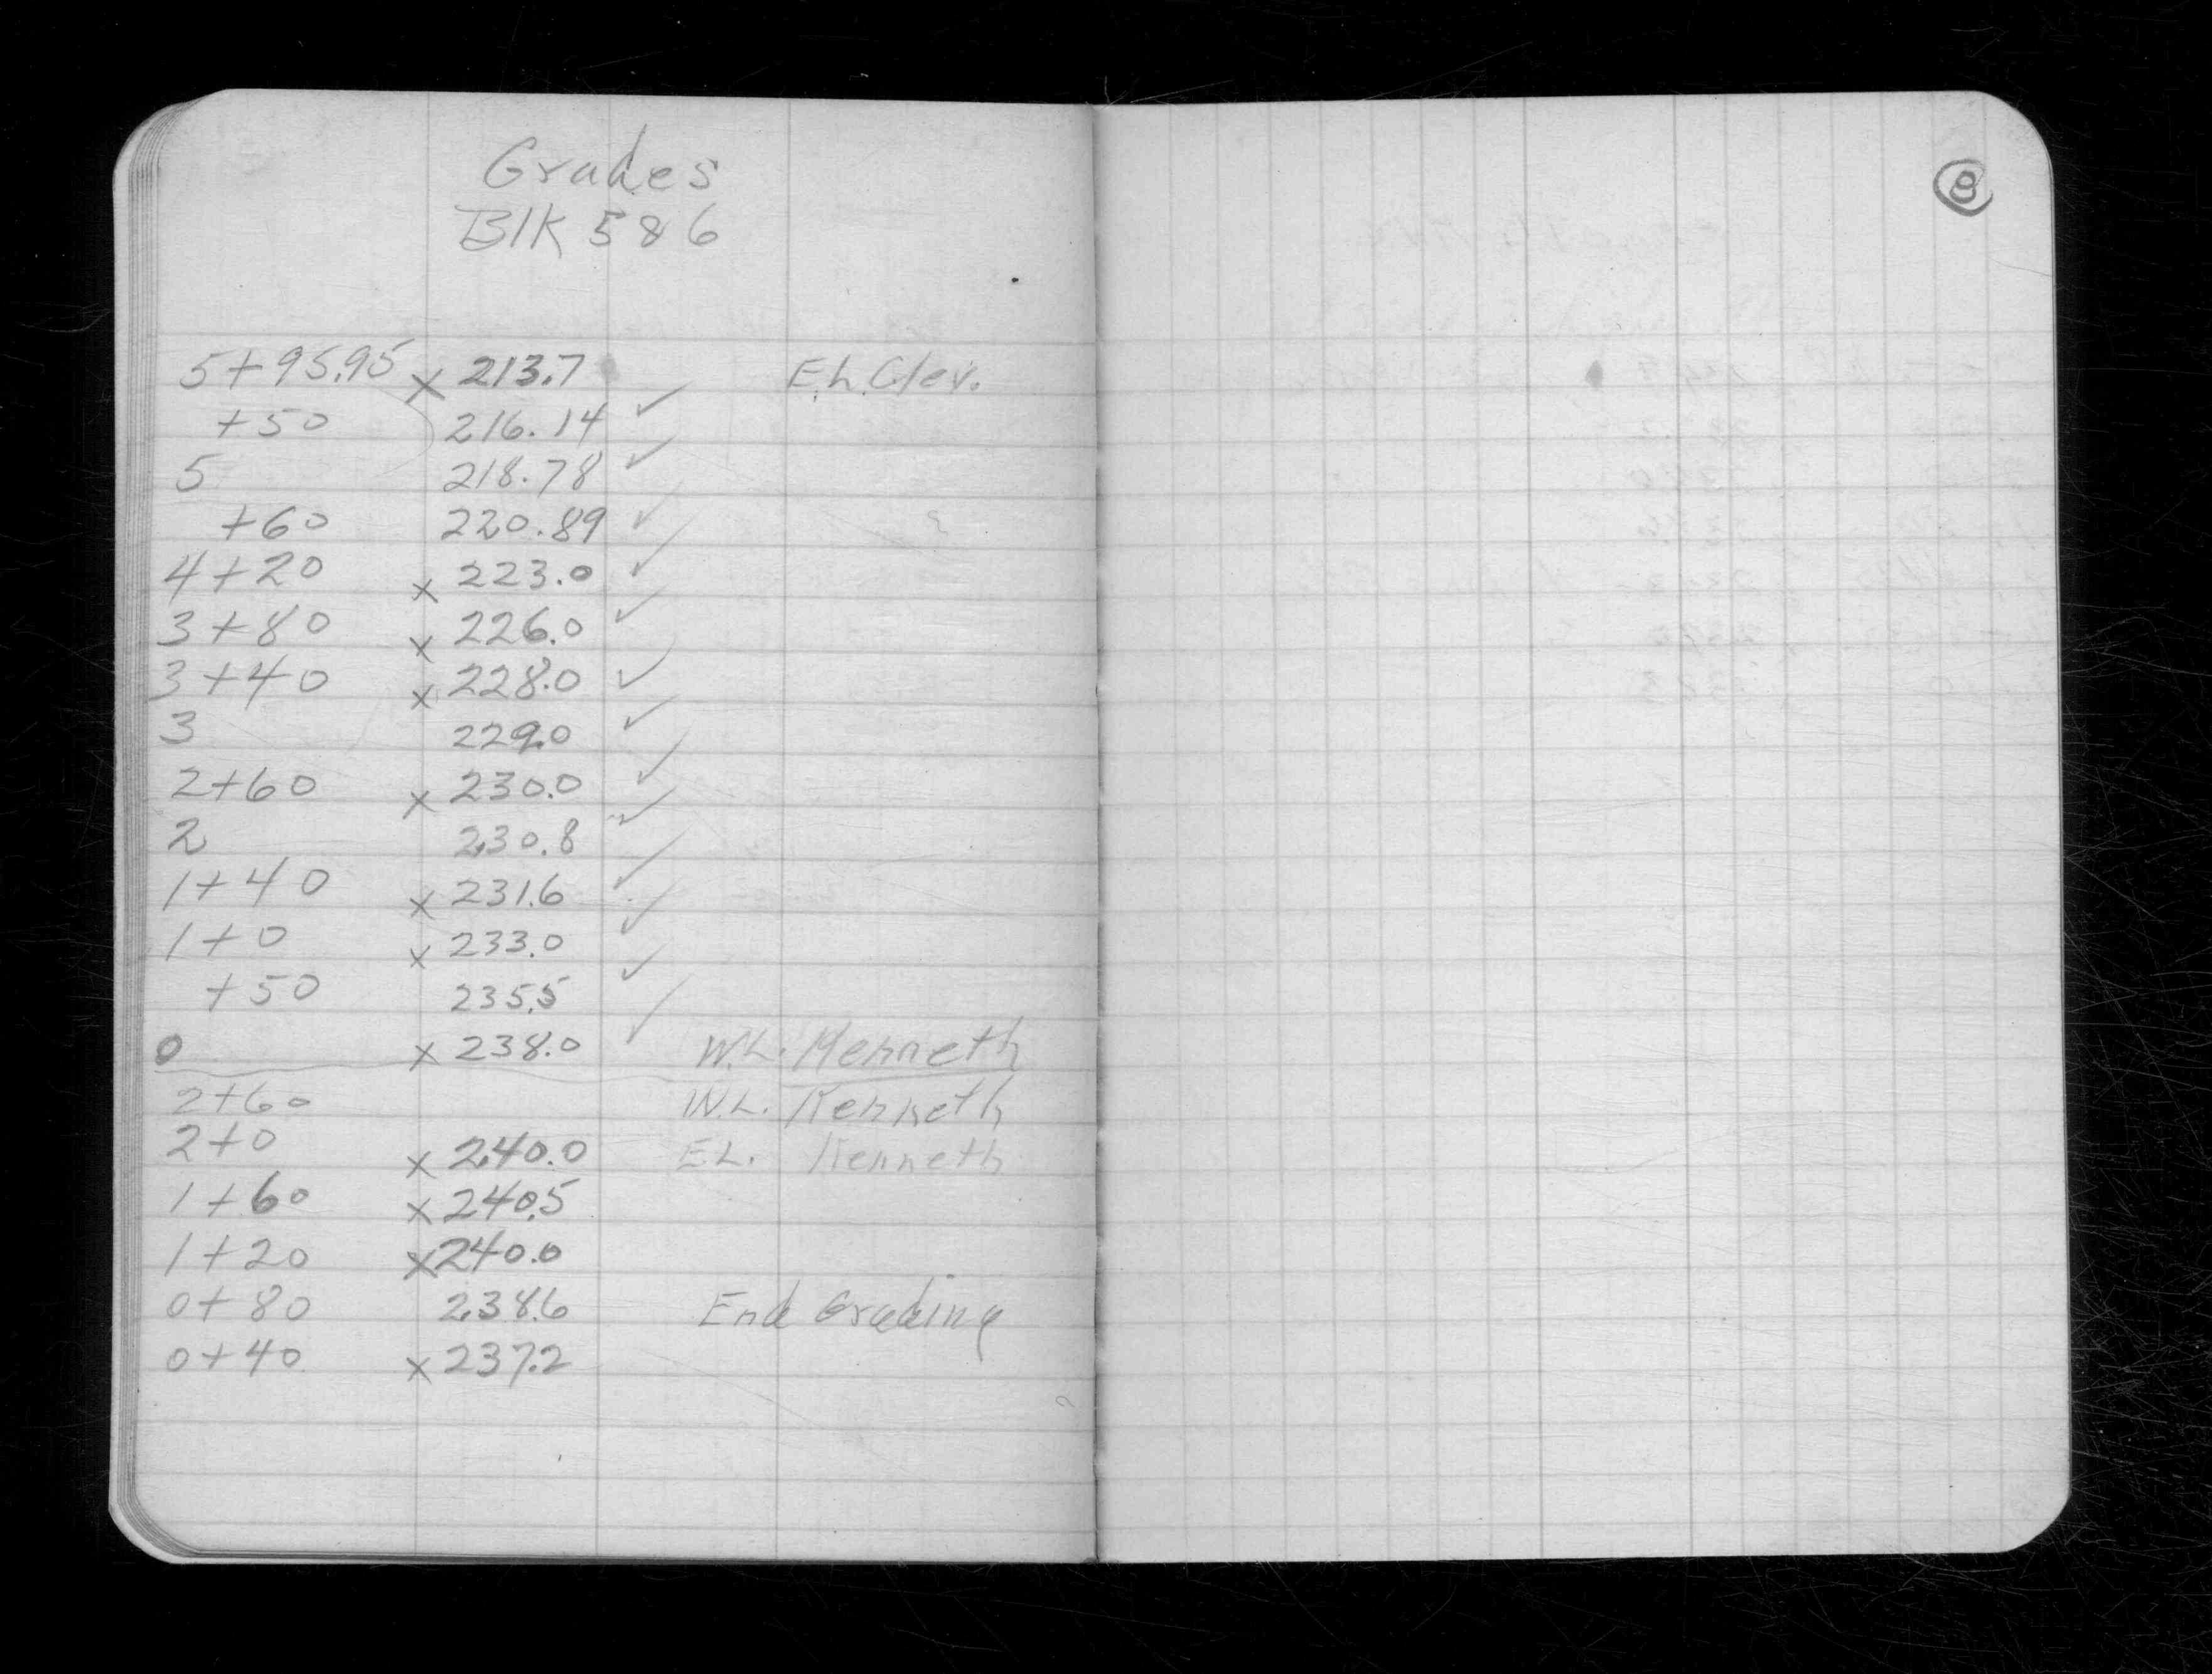 Grades
Blk 586
5+95.95 x 213.7 E.L. Clev.
+50 216.14 ✓
5 218.78 ✓
+60 220.89 ✓
4+20 x 223.0 ✓
3+80 x 226.0 ✓
3+40 x 228.0 ✓
3 229.0 ✓
2+60 x 230.0 ✓
2 230.8 ✓
1+40 x 231.6 ✓
1+0 x 233.0 ✓
+50 235.5 ✓
0 x 238.0 ✓ W.L. Kenneth
2+60 W.L. Kenneth
2+0 x 240.0 E.L. Kenneth
1+60 x 240.5
1+20 x 240.0
0+80 238.6 End Grading
0+40 x 237.2
8